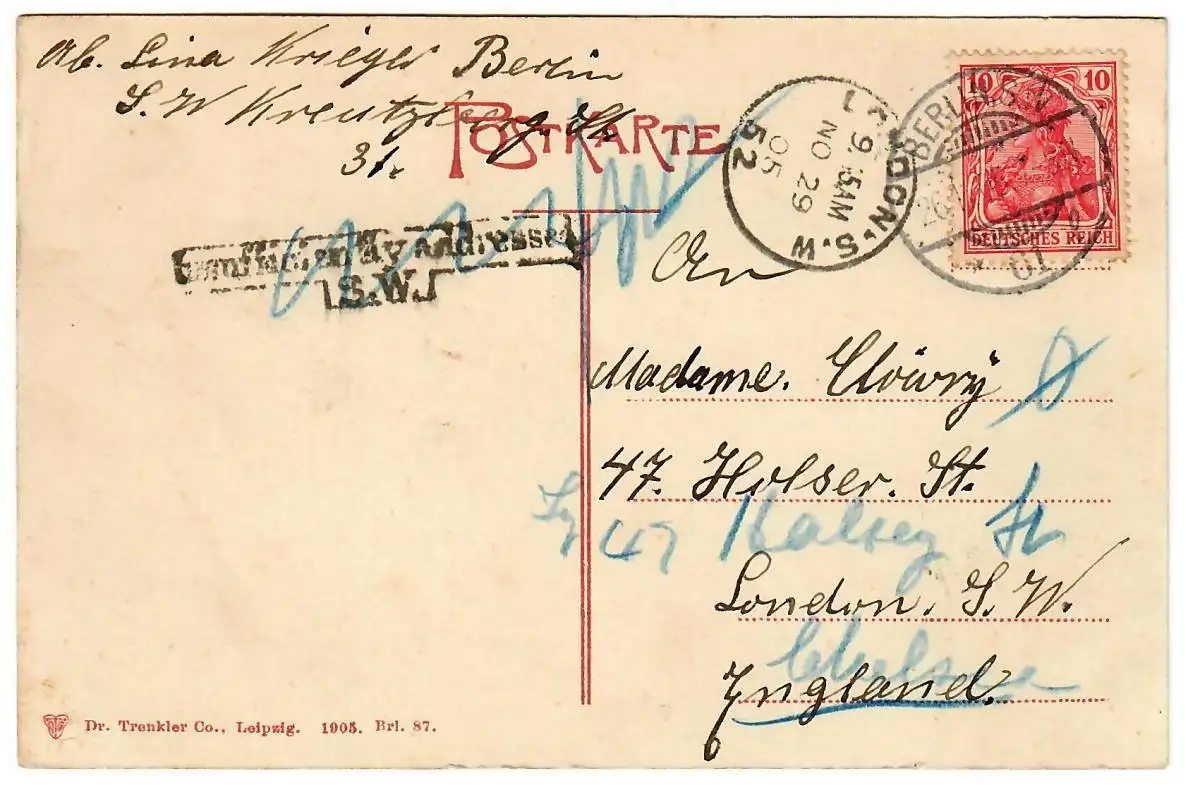 Ab. Lina Krieger Berlin
S. W Kreutzberg. St.
31.
POSTKARTE
10 10
DEUTSCHES REICH
BERLIN S.W
61
LONDON. S.W
9.15AM
NO 29
05
52
by Addressee
S.W.
An
Madame.
47. Holser. St.
47 Halsey St
London. S. W.
Chelsea
England.
Dr. Trenkler Co., Leipzig. 1905. Brl. 87.